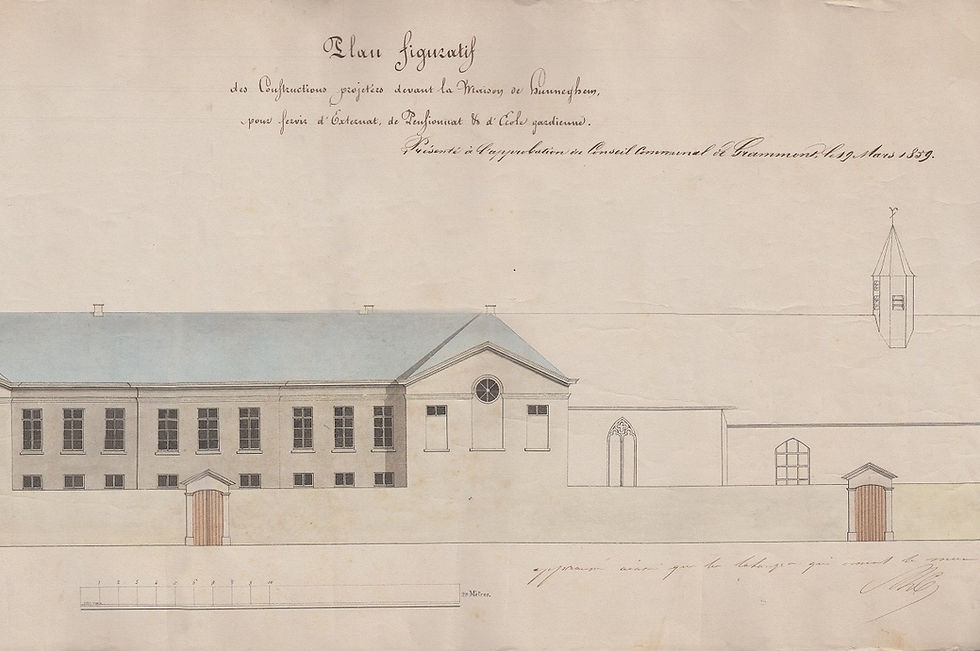 Plan figuratif
des Constructions projetées devant la Maison de hunneghem,
pour servir d'Externat, de Pensionnat & d'Ecole gardienne.
Présenté à l'approbation du Conseil Communal de Grammont, le 19 Mars 1859.
1 2 3 4 5 6 7 8 9 10
20 Mètres.
approuvé ainsi que les
qui le mur